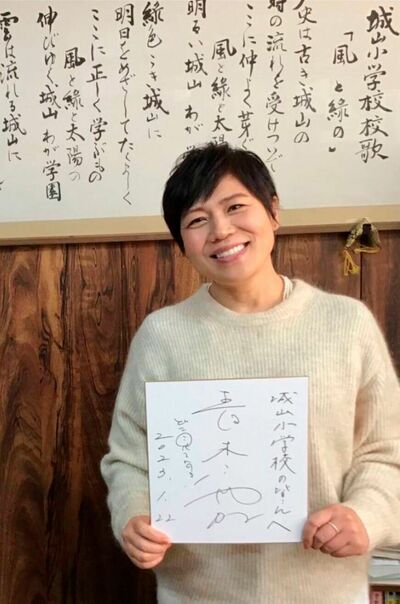 城山小学校校歌
「風と緑の」
史は古き城山の
時の流れを受けついで
ここに仲よく芽ぐ
風と緑と太陽
明るい城山 わが
緑色こき城山に
明日をめざしてたくましく
ここに正しく学ぶもの
風と緑と太陽の
伸びゆく城山 わが学園
雲は流れる城山に
城山小学校の皆さんへ
青木
1.22